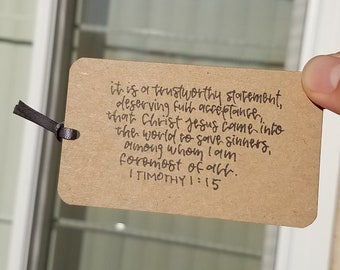 it is a trustworthy statement,
deserving full acceptance,
that Christ Jesus came into
the world to save sinners,
among whom I am
foremost of all.
1 TIMOTHY 1:15